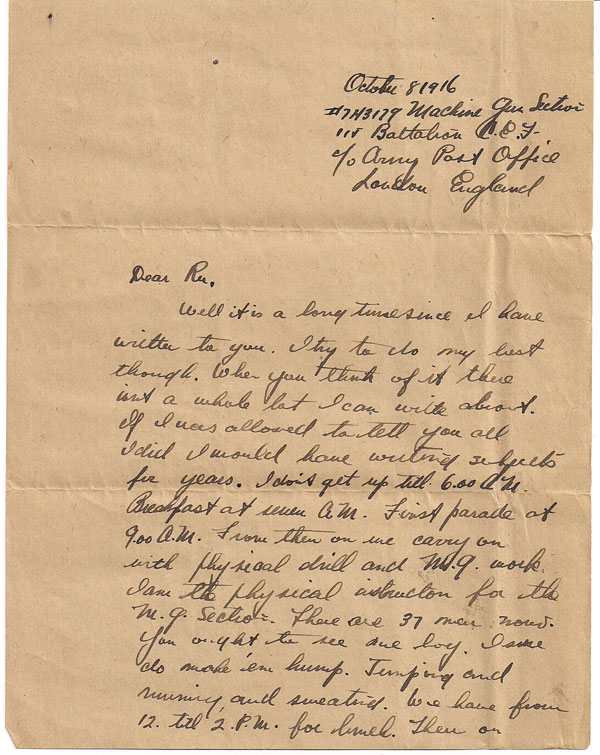 October 8 1916
#743179 Machine Gun Section
115 Battalion C.E.F.
c/o Army Post Office
London England
Dear Ru.
Well it is a long time since I have
written to you. I try to do my best
though. When you think of it there
isnt a whole lot I can write about.
If I was allowed to tell you all
I did I would have writing subjects
for years. I dont get up till 6.00 A.M.
Breakfast at seven A.M. First parade at
9.00 A.M. From then on we carry on
with physical drill and M.G. work.
I am the physical instructor for the
M.G. Section. There are 37 men now.
You ought to see me boy. I sure
do make 'em hump. Jumping and
running, and sweating. We have from
12. till 2 P.M. for lunch. Then on